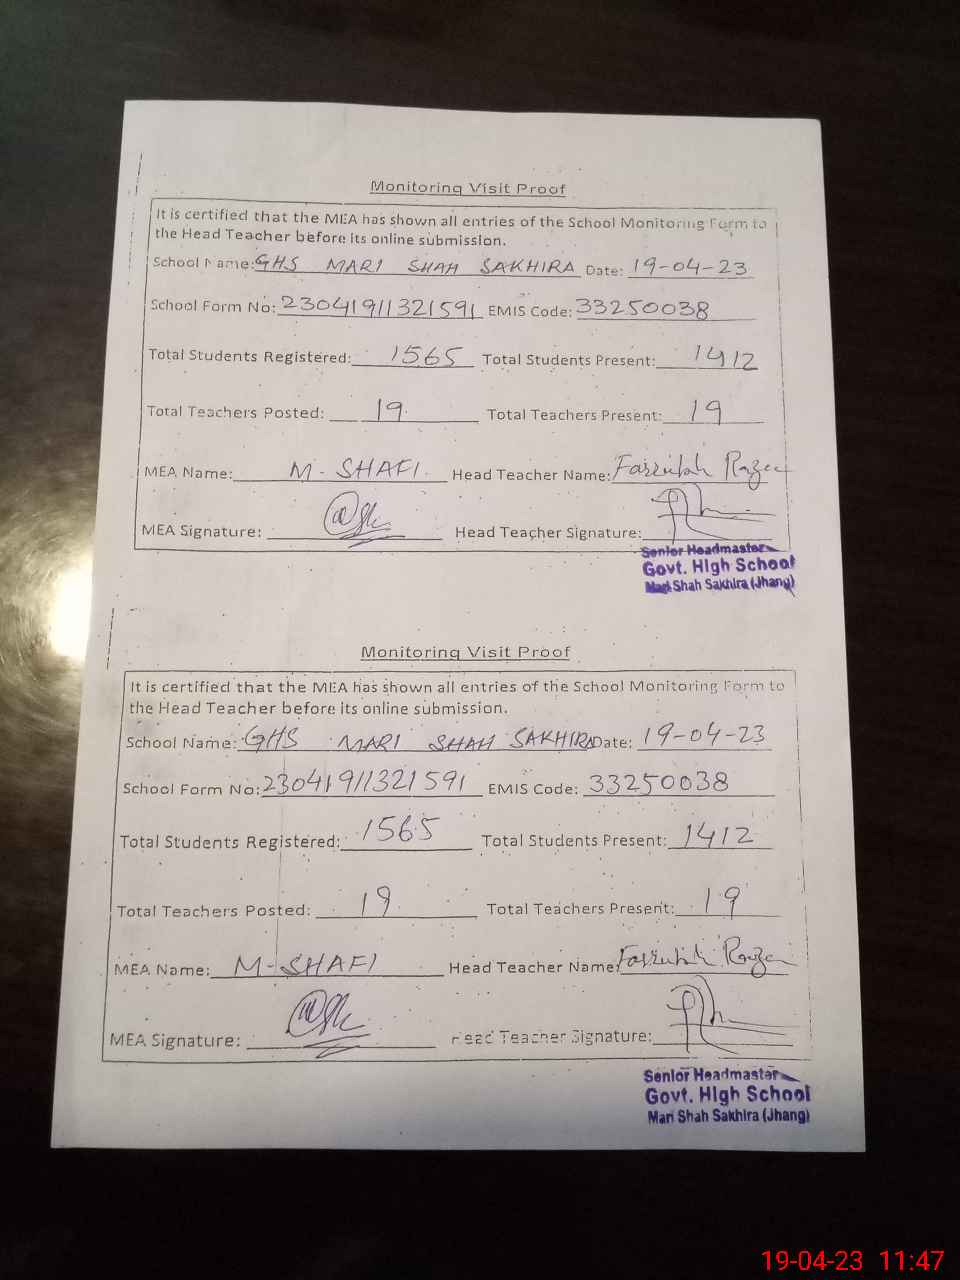 Monitoring Visit Proof
It is certified that the MEA has shown all entries of the School Monitoring Form to
the Head Teacher before its online submission.
School Name: GHS MARI SHAH SAKHIRA Date: 19-04-23
School Form No: 23041911321591 EMIS Code: 33250038
Total Students Registered: 1565 Total Students Present: 1412
Total Teachers Posted: 19 Total Teachers Present: 19
MEA Name: M-SHAFI Head Teacher Name:
MEA Signature: Head Teacher Signature:
Senior Headmaster
Govt. High School
Mari Shah Sakhira (Jhang)
Monitoring Visit Proof
It is certified that the MEA has shown all entries of the School Monitoring Form to
the Head Teacher before its online submission.
School Name: GHS MARI SHAH SAKHIRA Date: 19-04-23
School Form No: 23041911321591 EMIS Code: 33250038
Total Students Registered: 1565 Total Students Present: 1412
Total Teachers Posted: 19 Total Teachers Present: 19
MEA Name: M-SHAFI Head Teacher Name:
MEA Signature: Head Teacher Signature:
Senior Headmaster
Govt. High School
Mari Shah Sakhira (Jhang)
19-04-23 11:47